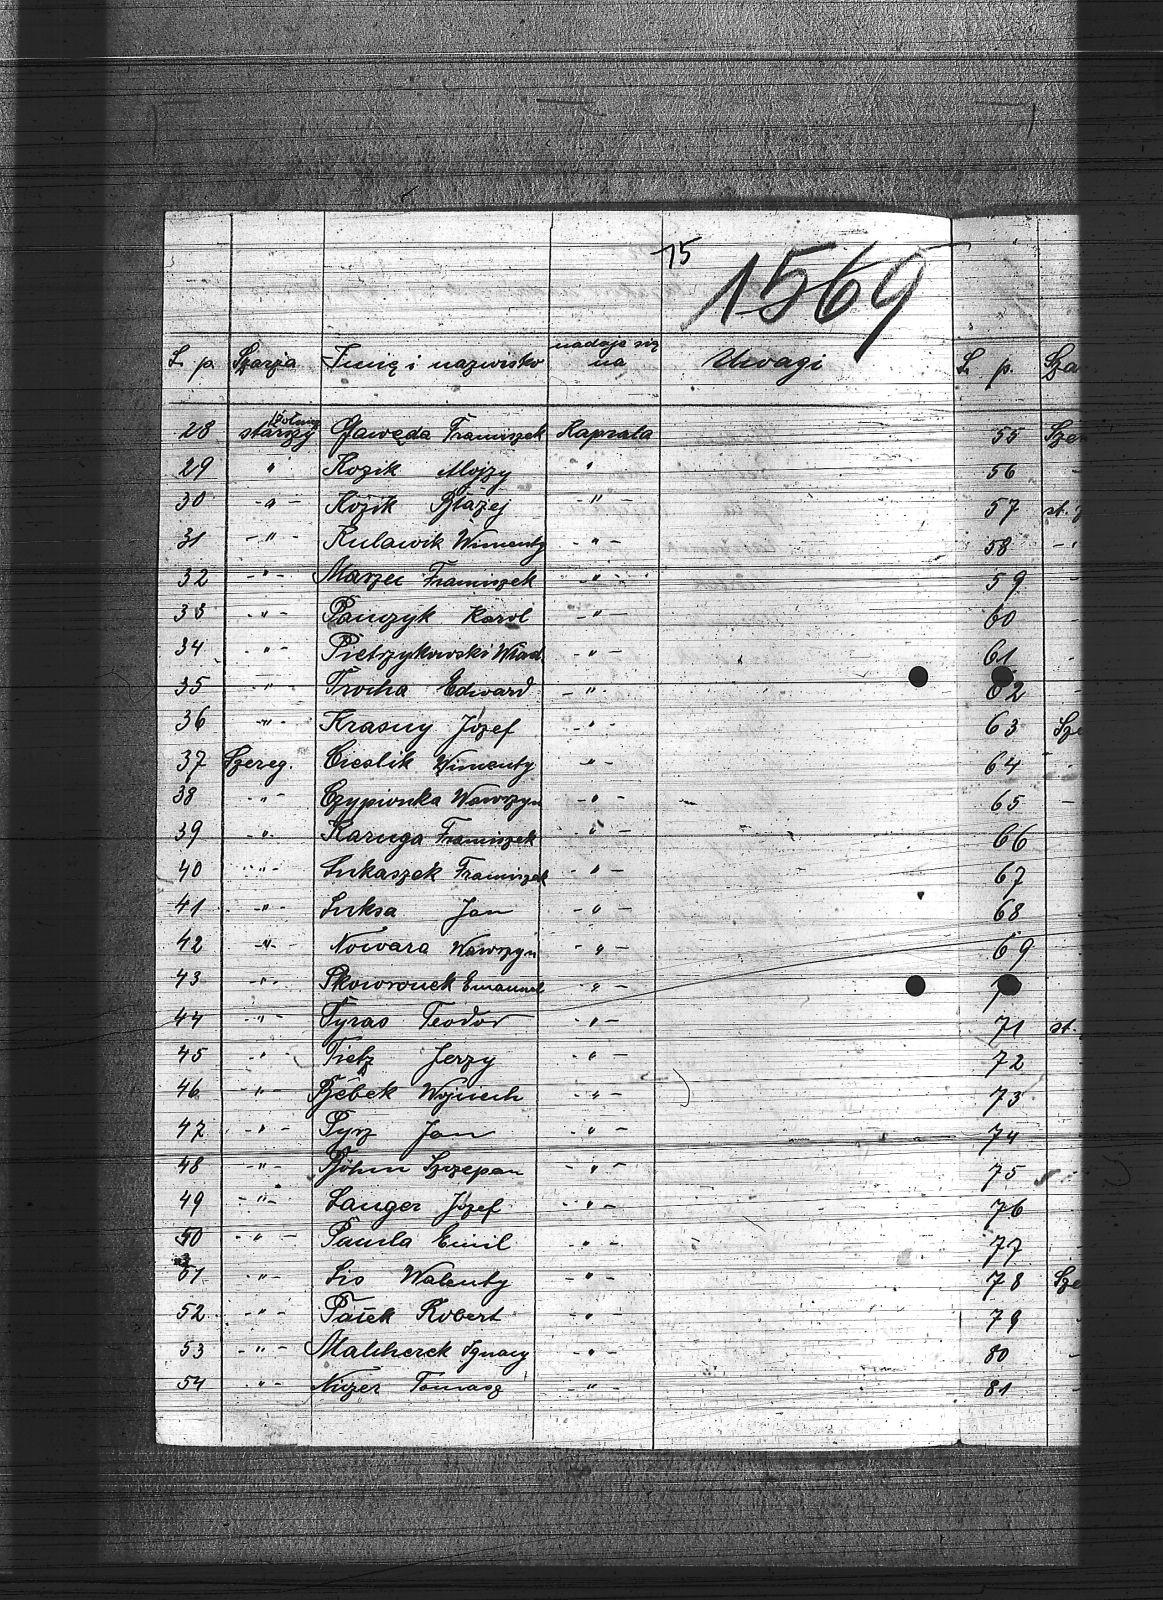 75
1569
L. p. Szarża Imię i nazwisko nadaje się na Uwagi L. p. Sza
28 starszy żołnierz Gawęda Franciszek Kaprala 55 Szer
29 " Kozik Alojzy " 56 -
30 -"- Kozik Błażej -"- 57 st. ż
31 -"- Kulawik Wincenty -"- 58 -"
32 -"- Marzec Franciszek -"- 59 -
33 -"- Pańczyk Karol -"- 60 -
34 -"- Pietrzykowski Wład. -"- 61 -
35 -"- Trocha Edward -"- 62 -
36 -"- Krasny Józef -"- 63 Sze
37 Szereg. Cieślik Wincenty -"- 64 -
38 -"- Czypionka Wawrzyn -"- 65 -
39 -"- Karuga Franciszek -"- 66
40 -"- Lukaszek Franciszek -"- 67 -
41 -"- Luksa Jan -"- 68 -
42 -"- Nowara Wawrzyn -"- 69
43 -"- Skowronek Emanuel -"-
44 -"- Tyras Teodor -"- 71 st.
45 -"- Tietz Jerzy -"- 72
46 -"- Bębek Wojciech -"- 73
47 -"- Pyrz Jan -"- 74
48 -"- Böhm Szczepan -"- 75
49 -"- Langer Józef -"- 76
50 -"- Pamła Emil -"- 77 -
51 -"- Lis Walenty -"- 78 Sze
52 -"- Patek Robert -"- 79
53 -"- Malcherek Ignacy -"- 80 -
54 -"- Nizer Tomasz -"- 81 -